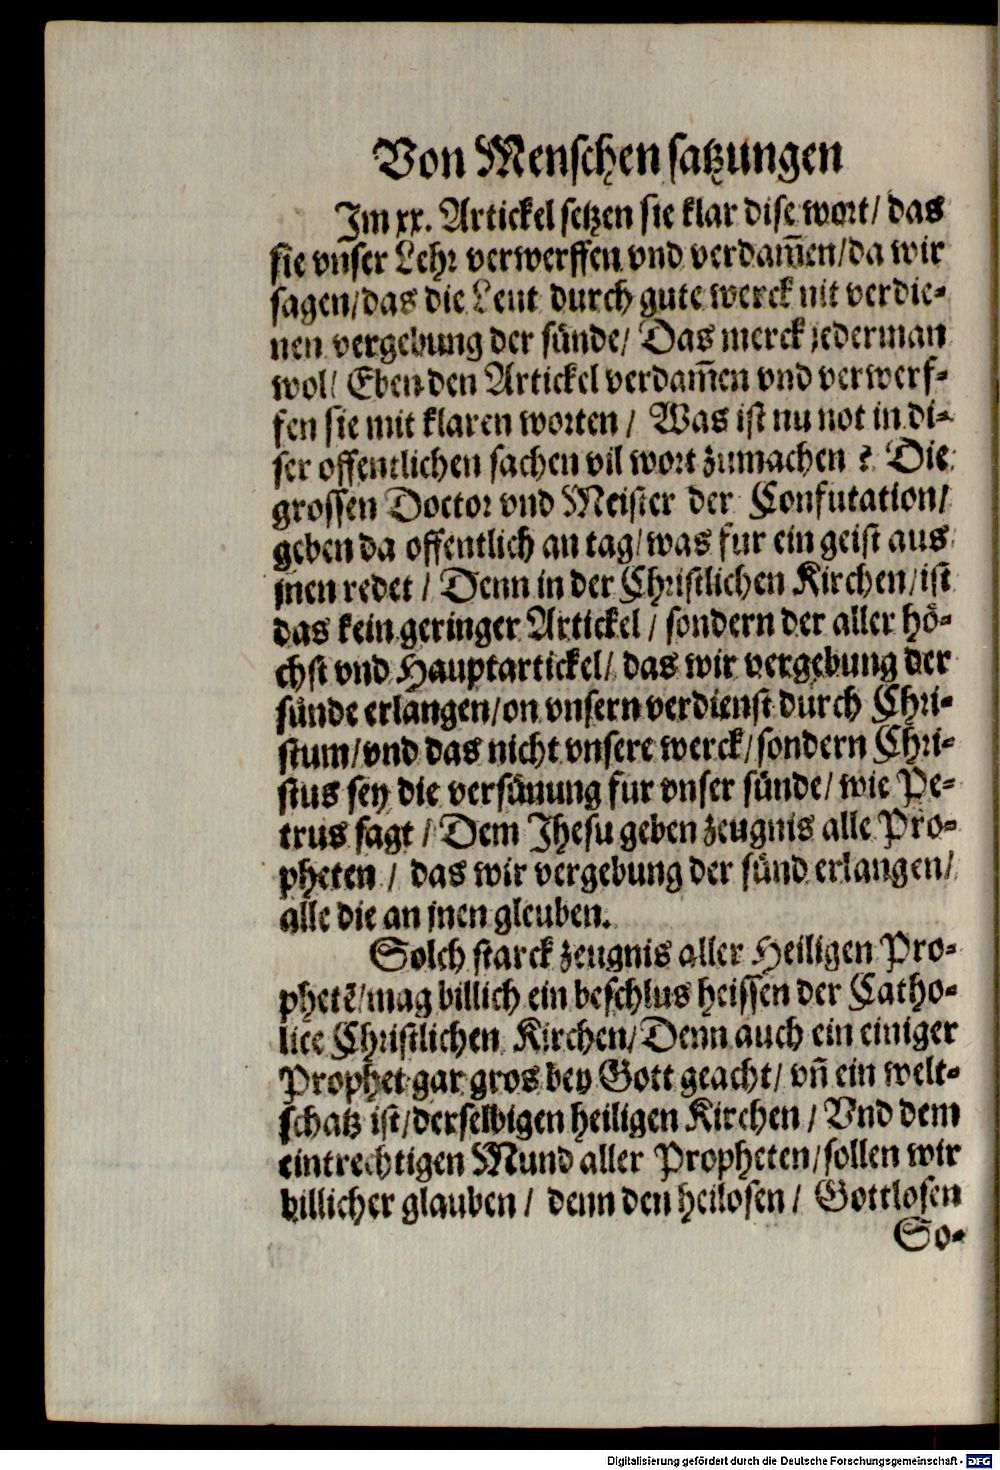 Von Menschen satzungen
Im xx. Artickel setzen sie klar dise wort/ das
sie vnser Lehr verwerffen vnd verdam̄en/da wir
sagen/das die Leut durch gute werck nit verdie-
nen vergebung der sünde/ Das merck jederman
wol/ Eben den Artickel verdam̄en vnd verwerf-
fen sie mit klaren worten / Was ist nu not in di-
ser offentlichen sachen vil wort zumachen ? Die
grossen Doctor vnd Meister der Confutation/
geben da offentlich an tag/was fur ein geist aus
jnen redet / Denn in der Christlichen Kirchen/ist
das kein geringer Artickel / sondern der aller hö-
chst vnd Hauptartickel/ das wir vergebung der
sünde erlangen/on vnsern verdienst durch Chri-
stum/vnd das nicht vnsere werck/sondern Chri-
stus sey die versünung fur vnser sünde/ wie Pe-
trus sagt / Dem Jhesu geben zeugnis alle Pro-
pheten / das wir vergebung der sünd erlangen/
alle die an jnen gleuben.
Solch starck zeugnis aller Heiligen Pro-
phetē/mag billich ein beschlus heissen der Catho-
lice Christlichen Kirchen/Denn auch ein einiger
Prophet gar gros bey Gott geacht/ vn̄ ein welt-
schatz ist/derselbigen heiligen Kirchen / Vnd dem
eintrechtigen Mund aller Propheten/sollen wir
billicher glauben / denn den heilosen / Gottlosen
So-
Digitalisierung gefördert durch die Deutsche Forschungsgemeinschaft - DFG